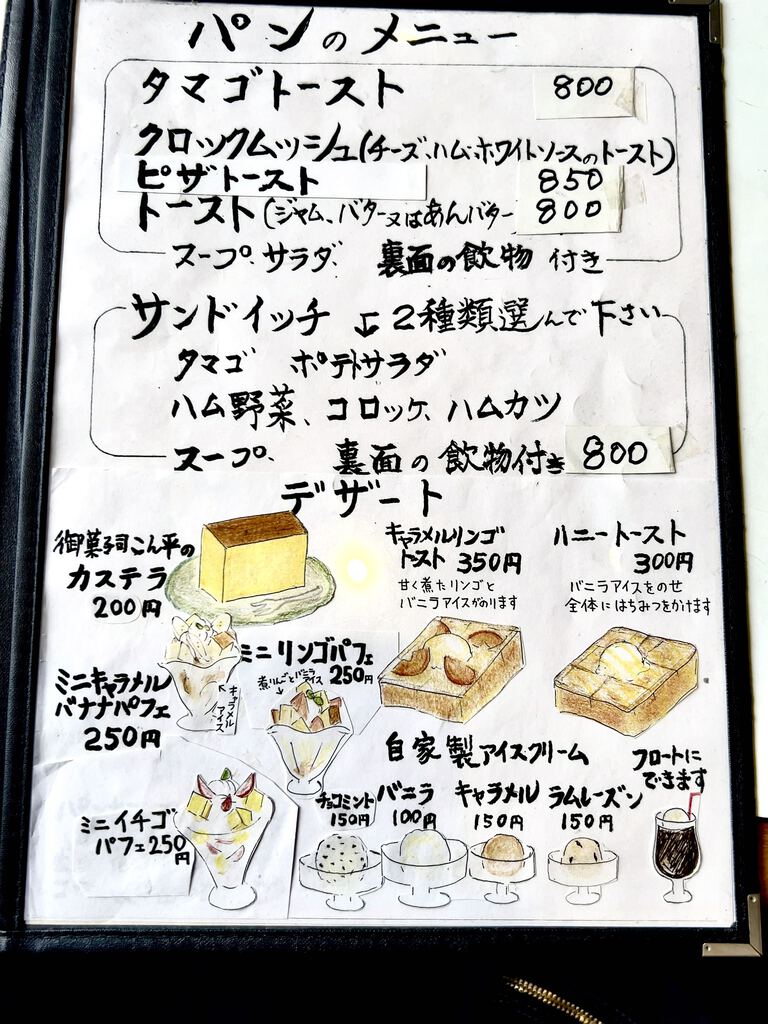 パンのメニュー
タマゴトースト 800
クロックムッシュ(チーズ、ハム、ホワイトソースのトースト)
ピザトースト 850
トースト(ジャム、バター又はあんバター 800
スープ、サラダ、裏面の飲物 付き
サンドイッチ ↓2種類選んで下さい
タマゴ ポテトサラダ
ハム野菜、コロッケ、ハムカツ
スープ、裏面の飲物付き 800
デザート
御菓子司こん平の
カステラ
200円
キャラメルリンゴ
トースト 350円
甘く煮たリンゴと
バニラアイスがのります
ハニートースト
300円
バニラアイスをのせ
全体にはちみつをかけます
ミニキャラメル
バナナパフェ
250円
キャラメル
アイス
ミニリンゴパフェ
250円
煮りんごとバニラ
アイス
ミニイチゴ
パフェ250円
自家製アイスクリーム
チョコミント
150円
バニラ
100円
キャラメル
150円
ラムレーズン
150円
フロートに
できます